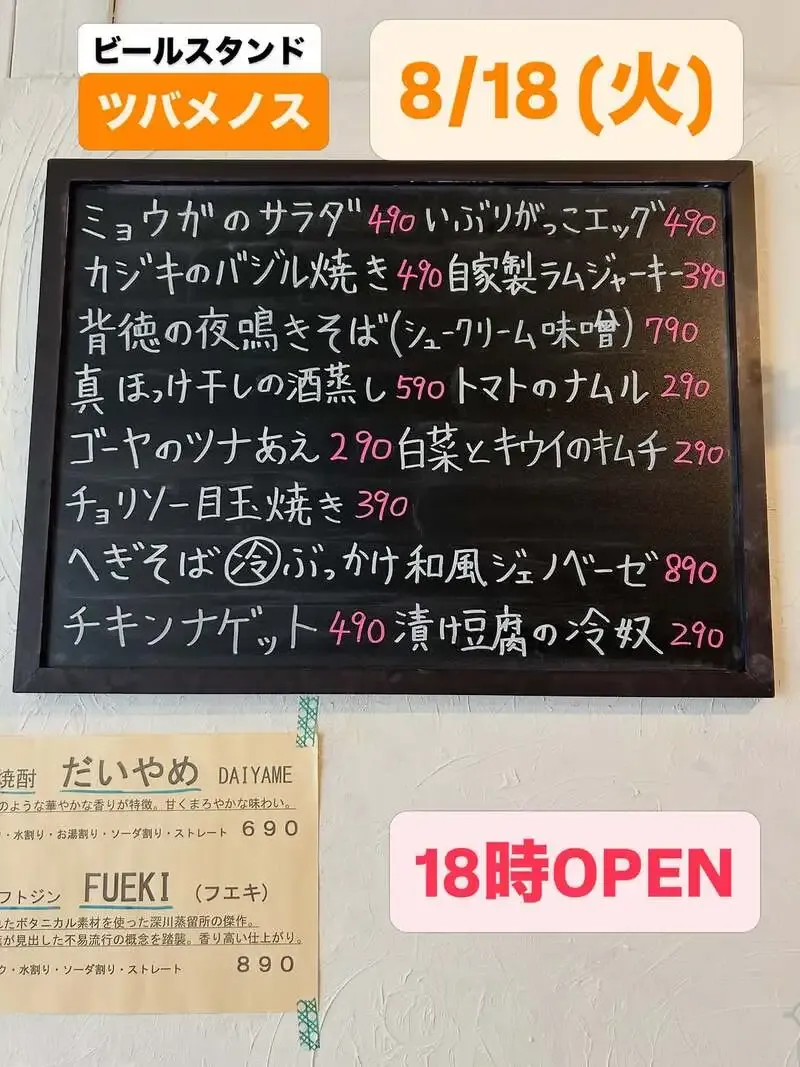 ビールスタンド
ツバメノス
8/18 (火)
ミョウガのサラダ 490 いぶりがっこエッグ 490
カジキのバジル焼き 490 自家製ラムジャーキー 390
背徳の夜鳴きそば(シュークリーム味噌) 790
真ほっけ干しの酒蒸し 590 トマトのナムル 290
ゴーヤのツナあえ 290 白菜とキウイのキムチ 290
チョリソー目玉焼き 390
へぎそば 冷 ぶっかけ和風ジェノベーゼ 890
チキンナゲット 490 漬け豆腐の冷奴 290
焼酎 だいやめ DAIYAME
のような華やかな香りが特徴。甘くまろやかな味わい。
・水割り・お湯割り・ソーダ割り・ストレート 690
フトジン FUEKI (フエキ)
れたボタニカル素材を使った深川蒸留所の傑作。
が見出した不易流行の概念を踏襲。香り高い仕上がり。
ク・水割り・ソーダ割り・ストレート 890
18時OPEN